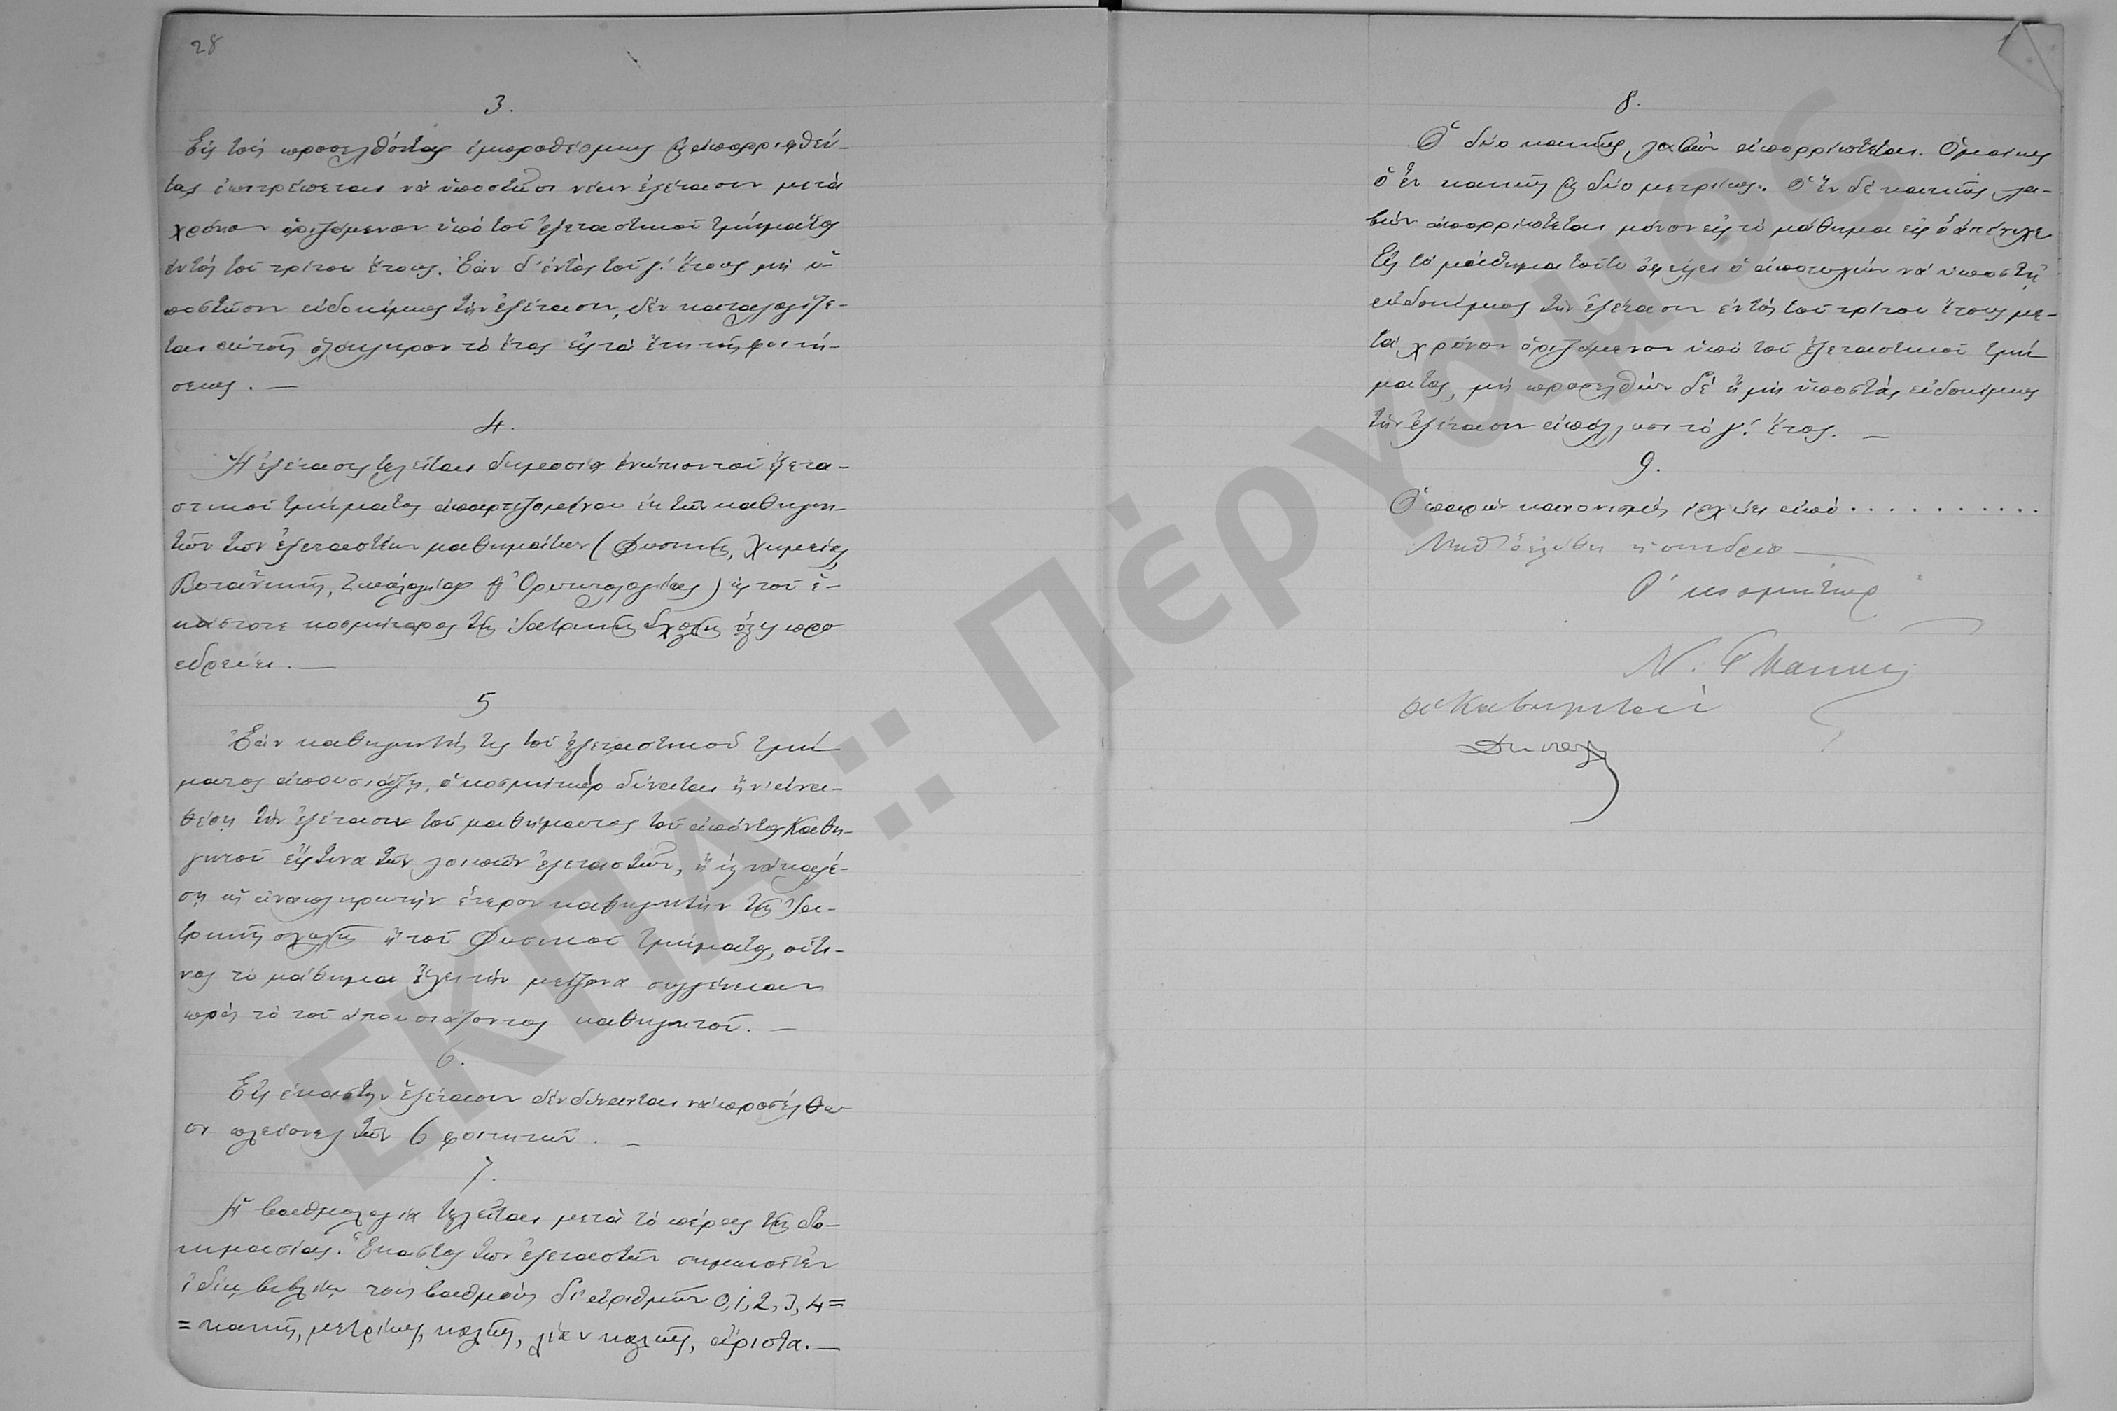 28
3.
Εἰς τοὺς προσελθόντας ἐμπροθέσμως ἢ ἀπορριφθέν-
τας ἐπιτρέπεται νὰ ὑποστῶσι νέαν ἐξέτασιν μετὰ
χρόνον ὁριζόμενον ὑπὸ τοῦ ἐξεταστικοῦ τμήματος
ἐντὸς τοῦ τρίτου ἔτους. Ἐὰν δ' ἐντὸς τοῦ γ'. ἔτους μὴ ὑ-
ποστῶσιν εὐδοκίμως τὴν ἐξέτασιν, δὲν καταλογίζε-
ται αὐτοῖς ὁλόκληρον τὸ ἔτος εἰς τὰ ἔτη τῆς φοιτή-
σεως. —
4.
Ἡ ἐξέτασις τελεῖται δημοσίᾳ ἐνώπιον τοῦ ἐξετα-
στικοῦ τμήματος ἀπαρτιζομένου ἐκ τῶν καθηγη-
τῶν τῶν ἐξεταστέων μαθημάτων (Φυσικῆς, Χημείας,
Βοτανικῆς, Ζωολογίας ἢ Ὀρυκτολογίας) ἐκ τοῦ ἑ-
κάστοτε κοσμήτορος τῆς Ἰατρικῆς Σχολῆς ὅστις προ
εδρεύει. —
5
Ἐὰν καθηγητής τις τοῦ ἐξεταστικοῦ τμή
ματος ἀπουσιάζῃ, ὁ κοσμήτωρ δύναται ἢ ν' ἀνα-
θέσῃ τὴν ἐξέτασιν τοῦ μαθήματος τοῦ ἀπόντος Καθη-
γητοῦ εἴς τινα τῶν λοιπῶν ἐξεταστῶν, ἢ νὰ καλέ-
σῃ ὡς ἀναπληρωτὴν ἕτερον καθηγητὴν τῆς Ἰα-
τρικῆς σχολῆς ἢ τοῦ Φυσικοῦ τμήματος, οὗτι-
νος τὸ μάθημα ἔχει τὴν μείζονα συγγένειαν
πρὸς τὸ τοῦ ἀπουσιάζοντος καθηγητοῦ. —
6.
Εἰς ἑκάστην ἐξέτασιν δὲν δύνανται νὰ προσέλθω
σι πλείονες τῶν 6 φοιτητῶν. —
7.
Ἡ βαθμολογία τελεῖται μετὰ τὸ πέρας τῆς δο-
κιμασίας. Ἕκαστος τῶν ἐξεταστῶν σημειοῖ ἐν
ἰδίῳ βιβλίῳ τοὺς βαθμοὺς δι' ἀριθμῶν 0, 1, 2, 3, 4 =
= κακῶς, μετρίως, καλῶς, λίαν καλῶς, ἄριστα. —
8.
Ὁ δύο κακῶς λαβὼν ἀπορρίπτεται. Ὁμοίως
ὁ ἓν κακῶς ἢ δύο μετρίως. Ὁ ἓν δὲ κακῶς λα-
βὼν ἀπορρίπτεται μόνον εἰς τὸ μάθημα εἰς ὃ ἀπέτυχε
Εἰς τὸ μάθημα τοῦτο ὀφείλει ὁ ἀποτυχὼν νὰ ὑποστῇ
εὐδοκίμως τὴν ἐξέτασιν ἐντὸς τοῦ τρίτου ἔτους με-
τὰ χρόνον ὁριζόμενον ὑπὸ τοῦ ἐξεταστικοῦ τμή
ματος, μὴ προσελθὼν δὲ ἢ μὴ ὑποστὰς εὐδοκίμως
τὴν ἐξέτασιν ἀπόλλυσι τὸ γ'. ἔτος. —
9.
Ὁ παρὼν κανονισμὸς ἰσχύει ἀπὸ . . . . . . . . . . .
Μεθ' ὃ ἐλύθη ἡ συνεδρία —
Ὁ κοσμήτωρ
Οἱ Καθηγηταὶ
ΕΚΠΑ :: Πέργαμος